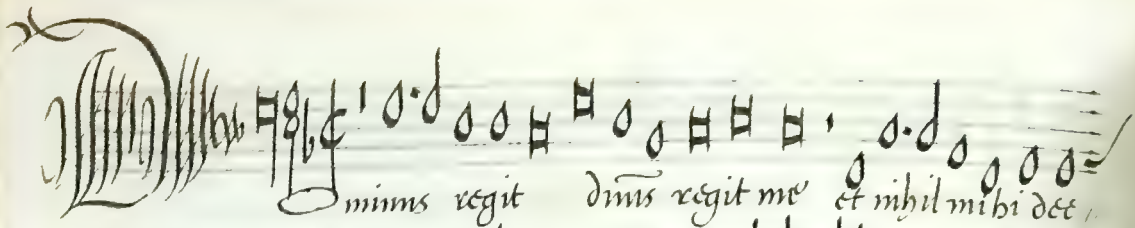 Dominus regit dn̄s regit me et nihil mihi dee